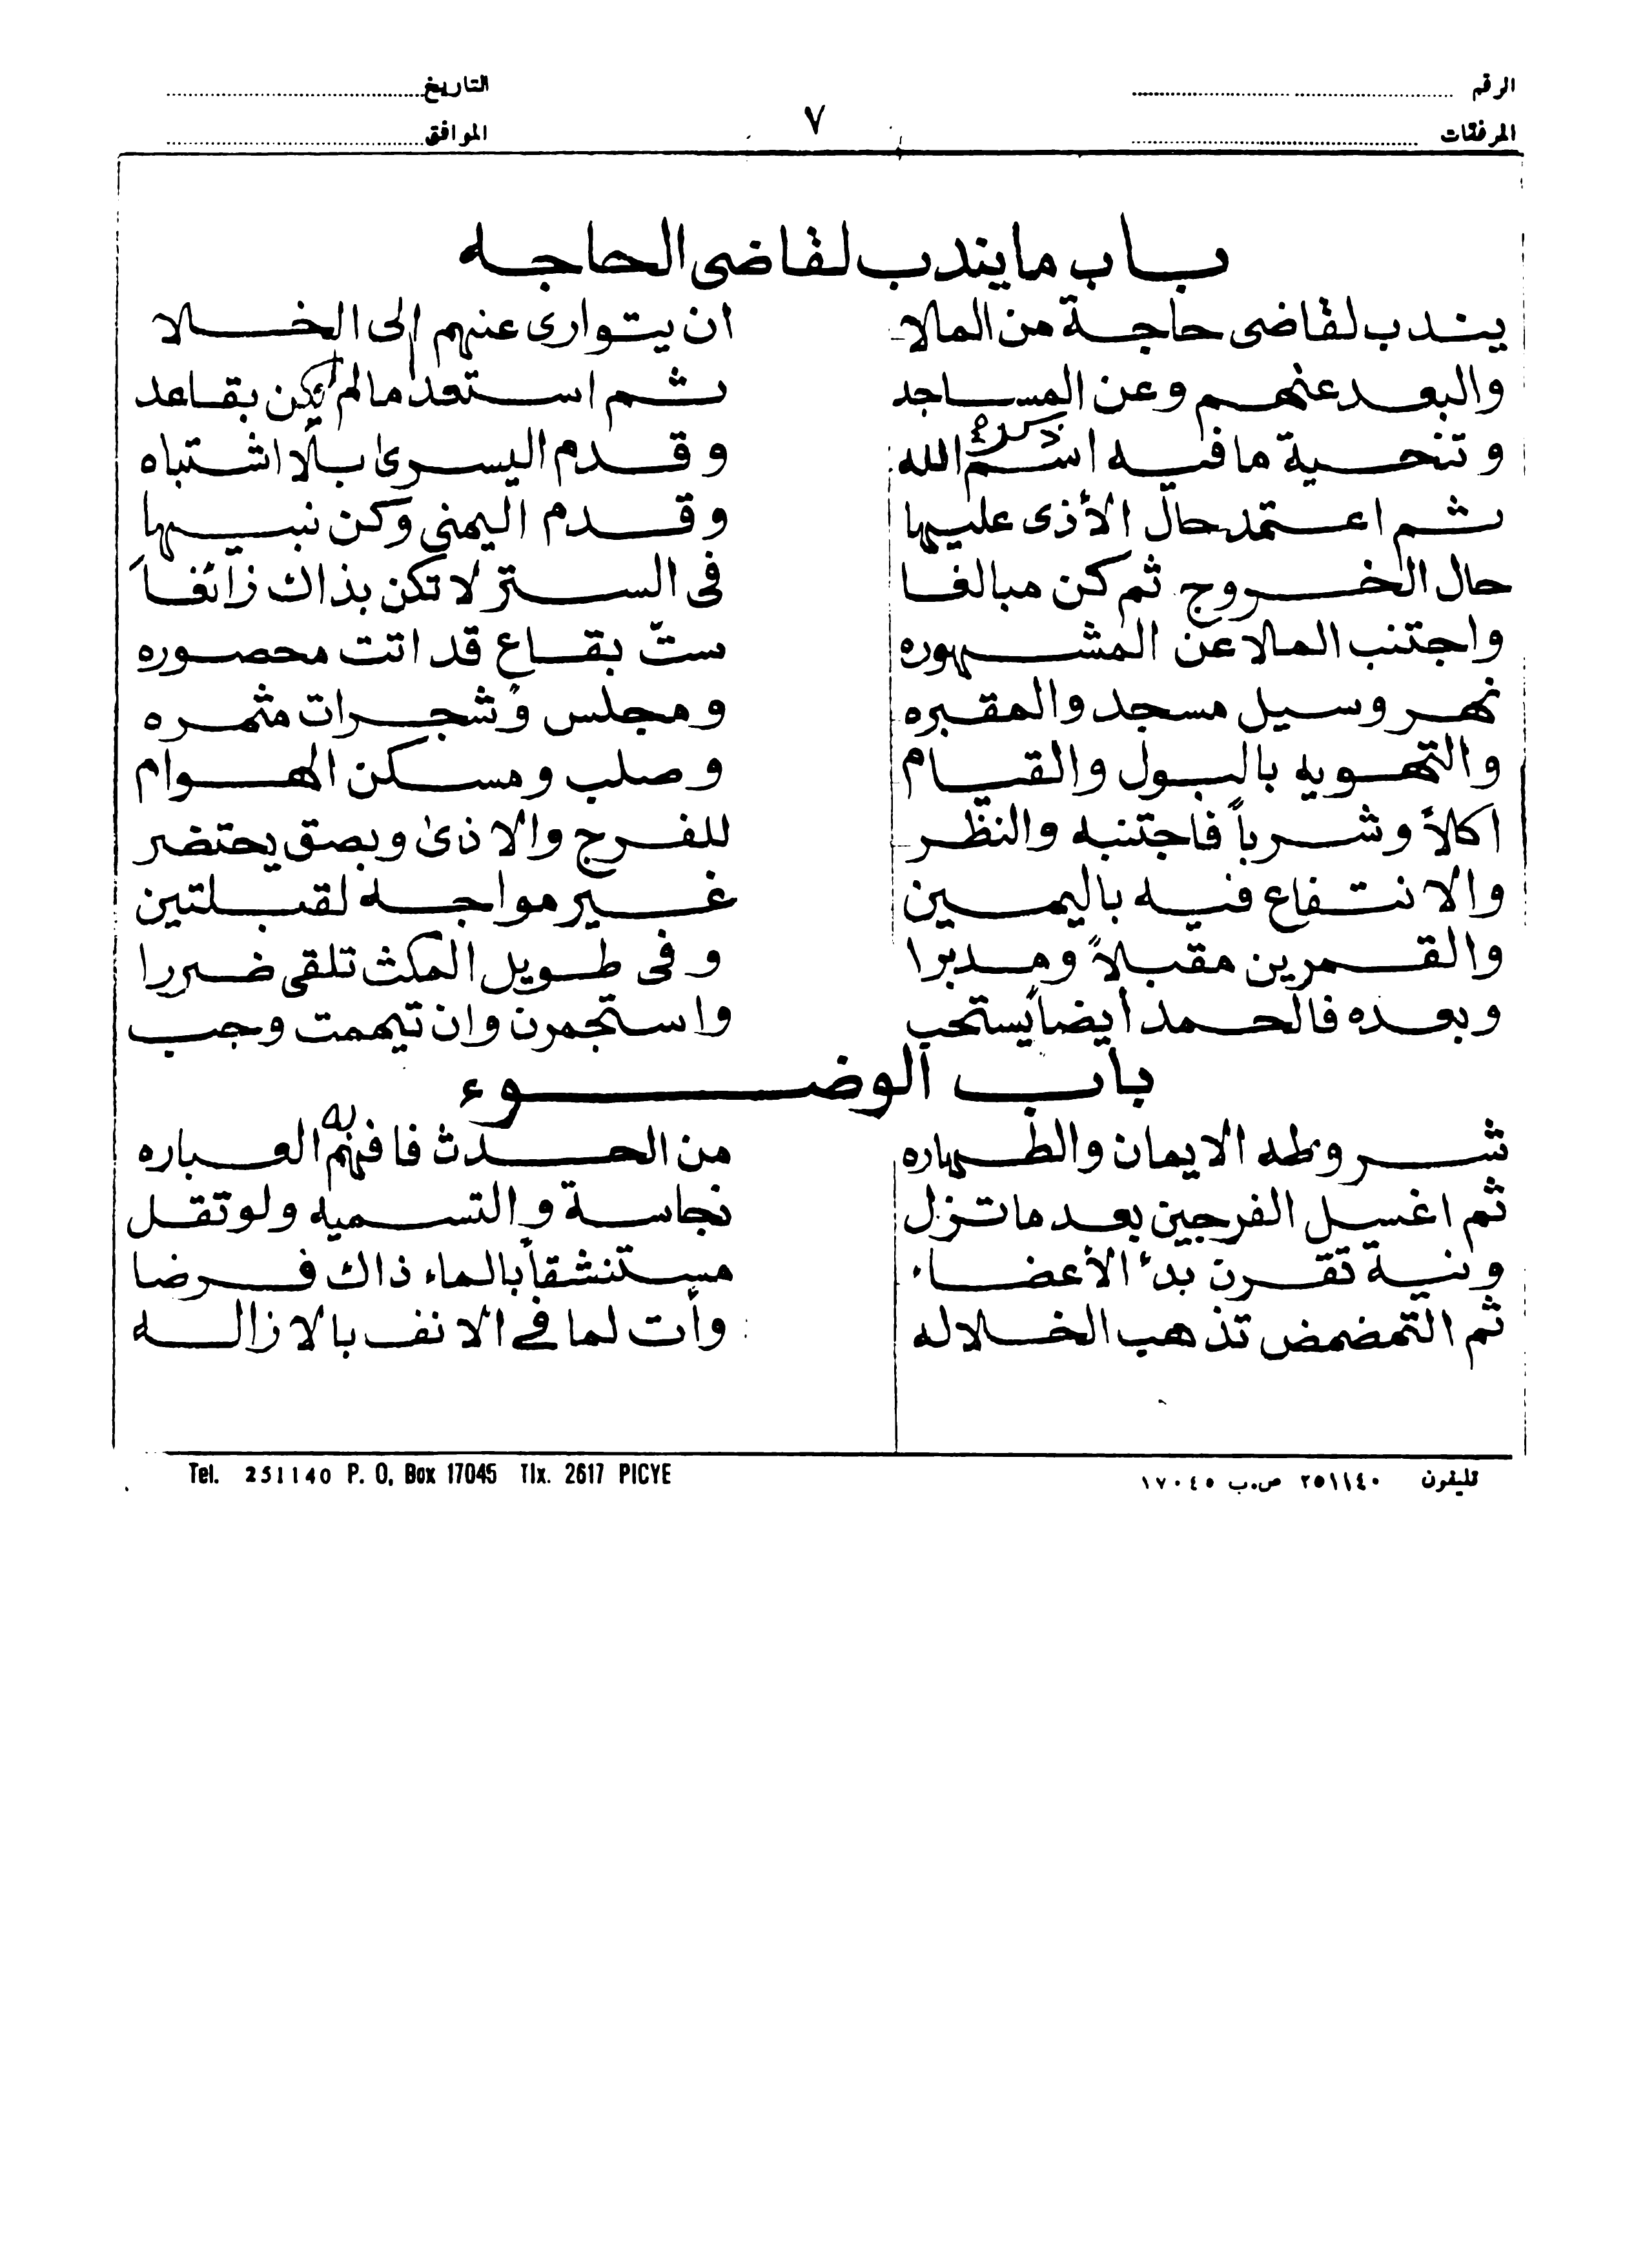 الرقم التاريخ
المرفقات ٧ الموافق
باب ما يندب لقاضى الحاجه
يندب لقاضى حاجة من الملا ان يتوارى عنهم إلى الخلا
والبعد عنهم وعن المساجد ثم استعذ ما لم تكن بقاعد
وتنحية ما فيه اسم الله وقدم اليسرى بلا اشتباه
ثم اعتمد حال الأذى عليها وقدم اليمنى وكن نبيها
حال الخروج ثم كن مبالغا فى الستر لا تكن بذاك زائغا
واجتنب الملاعن المشهوره ستّ بقاع قد اتت محصوره
نهر وسيل مسجد والمقبره ومجلس وشجرات مثمره
والتهويه بالبول والقيام وصلب ومسكن الهوام
اكلاً وشرباً فاجتنبه والنظر للفرج والاذى وبصق يحتضر
والانتفاع فيه باليمين غير مواجه لقبلتين
والقمرين مقبلاً ومدبرا وفى طويل المكث تلقى ضررا
وبعده فالحمد أيضاً يستحب واستجمرن وان تيممت وجب
باب الوضوء
شروطه الايمان والطهاره من الحدث فافهم العباره
ثم اغسل الفرجين بعد ما تزل نجاسة والتسميه ولو تقل
ونية تقرن بدء الأعضاء مستنشقاً بالماء ذاك فرضا
ثم التمضمض تذهب الخلاله وأت لما في الانف بالازاله
تليفون ٢٥١١٤٠ ص.ب ١٧٠٤٥ Tel. 251140 P. O, Box 17045 Tlx. 2617 PICYE